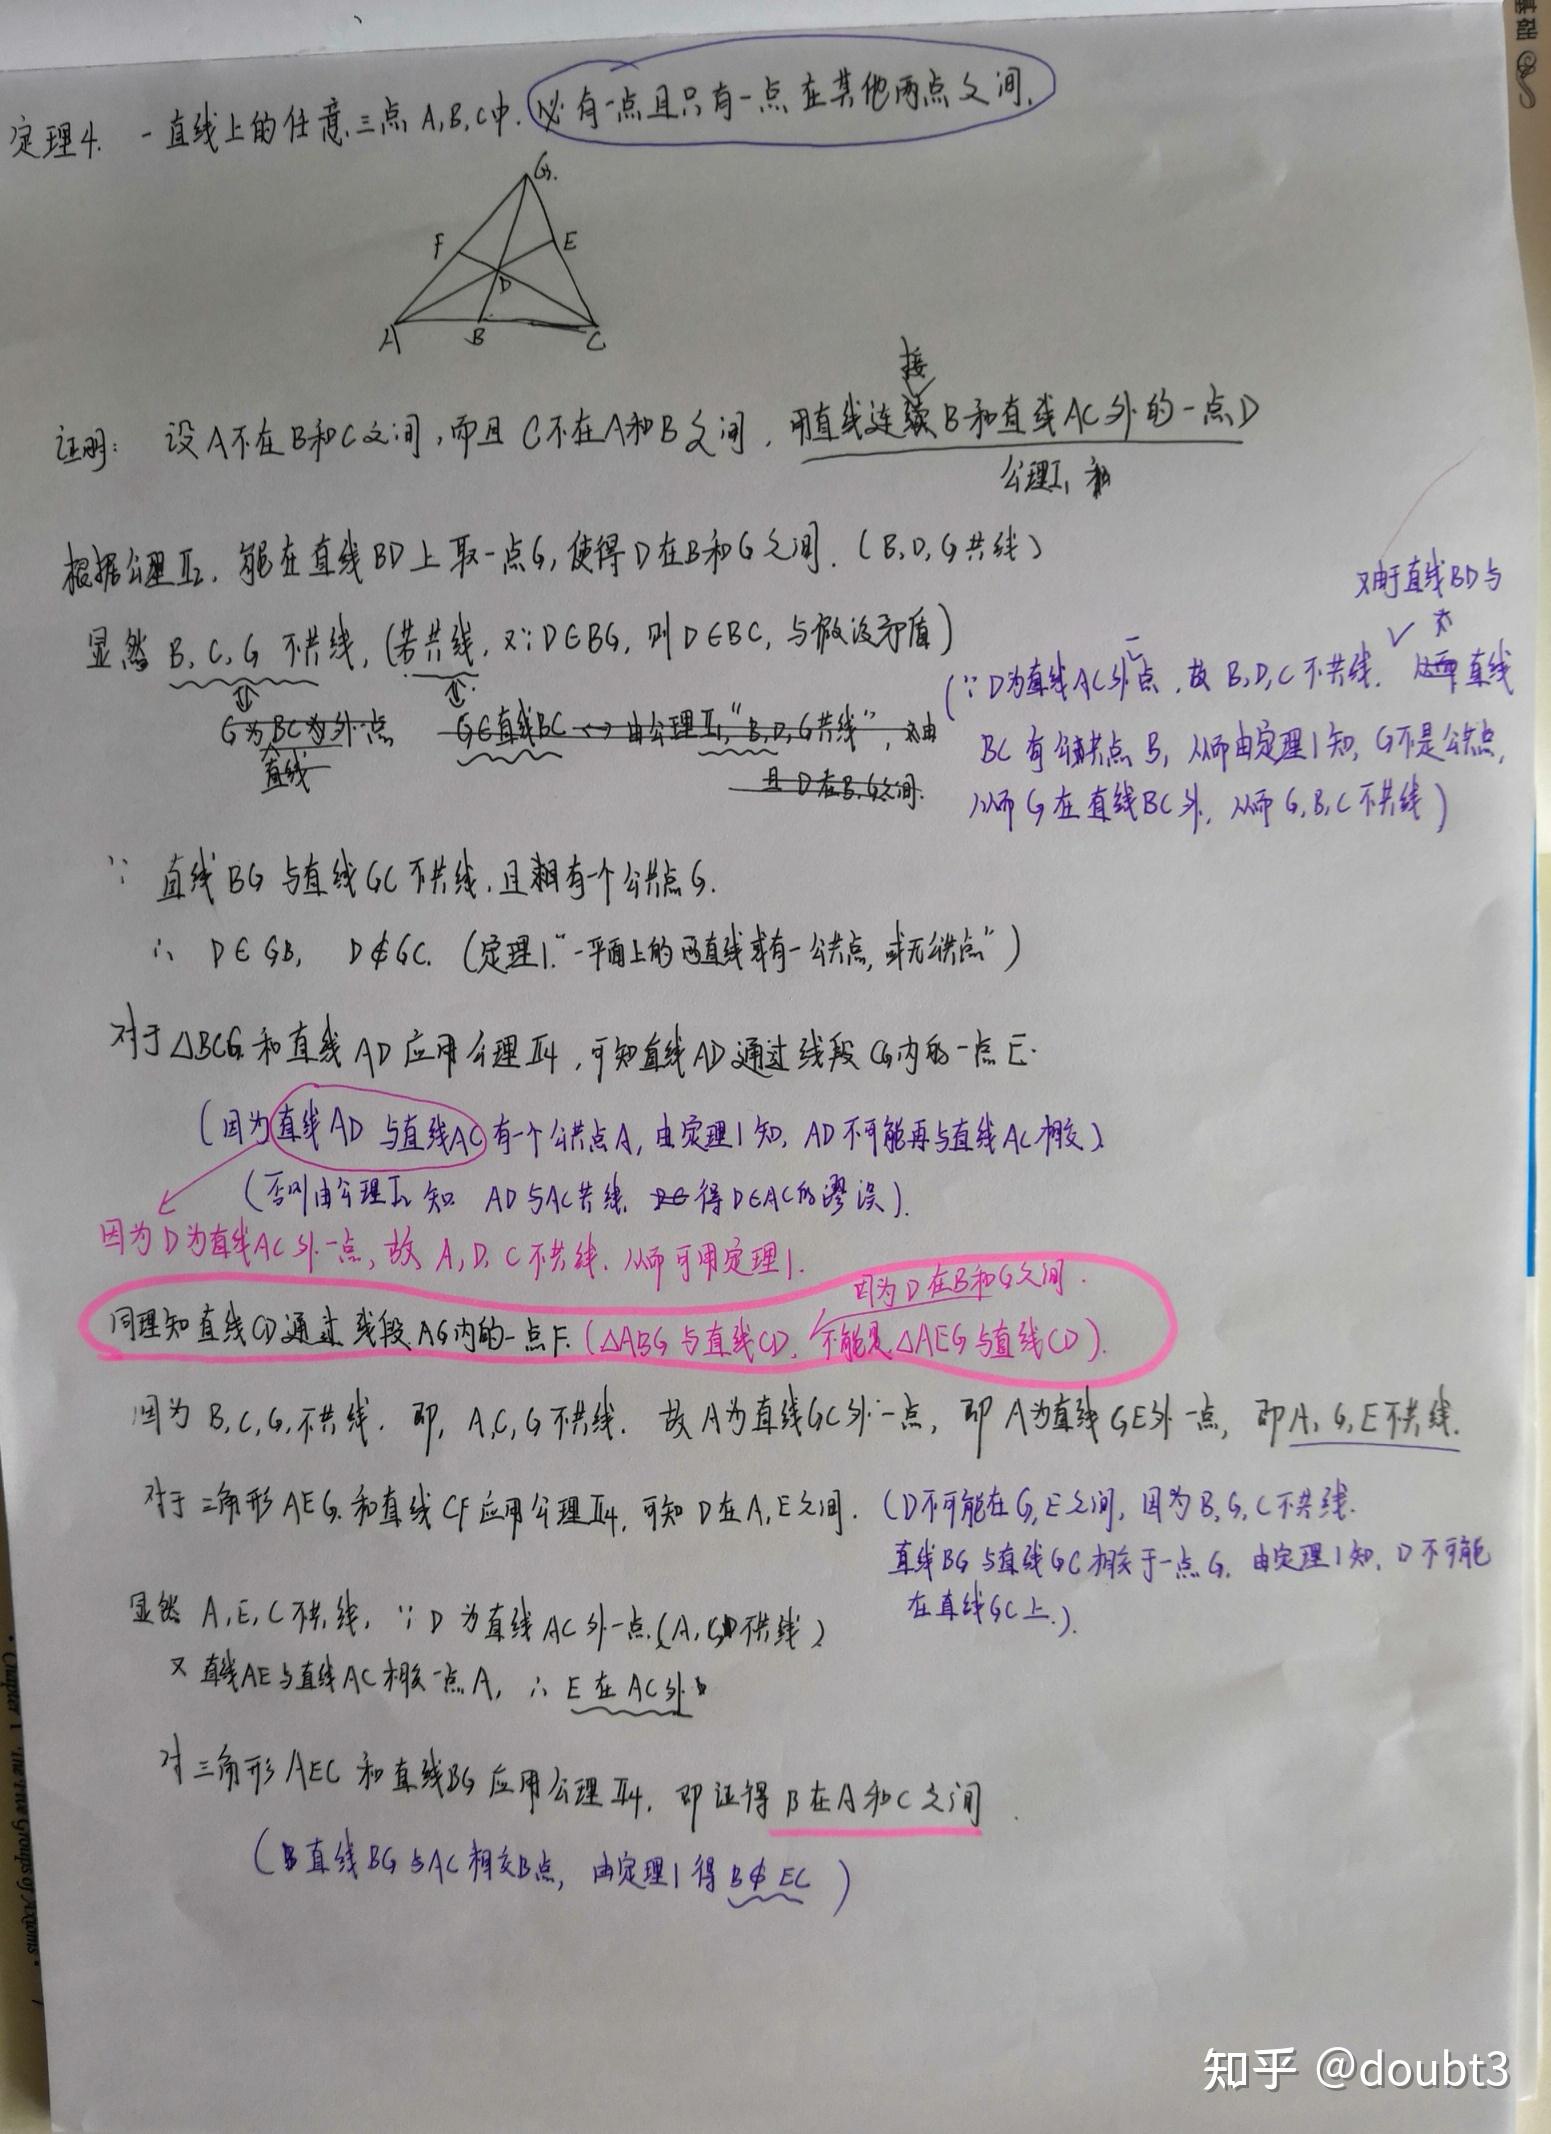 定理4. 一直线上的任意三点A,B,C中.必有一点且只有一点在其他两点之间.
G.
F
E
D
A
B
C
接
证明: 设A不在B和C之间,而且C不在A和B之间,用直线连续B和直线AC外的一点D
公理I₁
根据公理II₂,能在直线BD上取一点G,使得D在B和G之间.(B,D,G共线)
又由于直线BD与
显然B,C,G不共线,(若共线,又∵D∈BG,则D∈BC,与假设矛盾)
(∵D为直线AC外一点,故B,D,C不共线. 直线
G为BC为外点
直线
G∈直线BC <-> 由公理II₁,"B,D,G共线",
且D在B,G之间.
BC有公共点B,从而由定理1知,G不是公共点,
从而G在直线BC外,从而G,B,C不共线)
∵ 直线BG与直线GC不共线.且有一个公共点G.
∴ D∈GB, D∉GC.(定理1."一平面上的两直线或有一公共点,或无公共点")
对于△BCG和直线AD应用公理II4,可知直线AD通过线段CG内的一点E.
(因为直线AD与直线AC有一个公共点A,由定理1知,AD不可能再与直线AC相交)
(否则由公理I₂知 AD与AC共线. 得D∈AC的谬误).
因为D为直线AC外一点,故A,D,C不共线.从而可用定理1.
因为D在B和G之间.
同理知直线CD通过线段AG内的一点F.(△ABG与直线CD.不能是△AEG与直线CD).
因为B,C,G,不共线.即,A,C,G不共线.故A为直线GC外一点,即A为直线GE外一点,即A,G,E不共线.
对于三角形AEG和直线CF应用公理II4,可知D在A,E之间.
(D不可能在G,E之间,因为B,G,C不共线.
直线BG与直线GC相交于一点G.由定理1知,D不可能
在直线GC上.).
显然A,E,C不共线,∵D为直线AC外一点.(A,C,D不共线)
又直线AE与直线AC相交一点A,∴E在AC外
对三角形AEC和直线BG应用公理II4,即证得B在A和C之间.
(直线BG与AC相交B点,由定理1得B∉EC)
Chapter 1 The Five Groups of Axioms
知乎 @doubt3